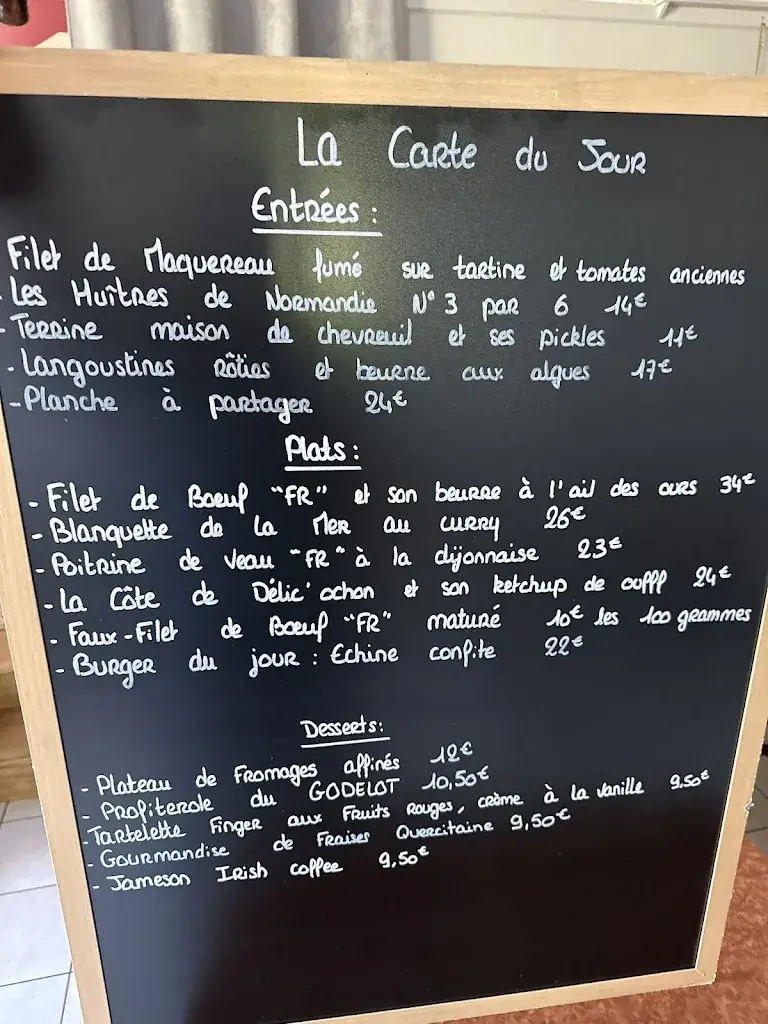 La Carte du Jour
Entrées :
Filet de Maquereau fumé sur tartine et tomates anciennes
- Les Huîtres de Normandie N° 3 par 6 14€
- Terrine maison de chevreuil et ses pickles 11€
- Langoustines Rôties et beurre aux algues 17€
- Planche à partager 24€
Plats :
- Filet de Boeuf "FR" et son beurre à l'ail des ours 34€
- Blanquette de La Mer au curry 26€
- Poitrine de Veau "FR" à la dijonnaise 23€
- La Côte de Délic'ochon et son ketchup de oufff 24€
- Faux-Filet de Boeuf "FR" maturé 10€ les 100 grammes
- Burger du jour : Echine confite 22€
Desserts :
- Plateau de Fromages affinés 12€
- Profiterole du GODELOT 10,50€
- Tartelette Finger aux Fruits Rouges, crème à la vanille 9,50€
- Gourmandise de Fraises Quercitaine 9,50€
- Jameson Irish coffee 9,50€